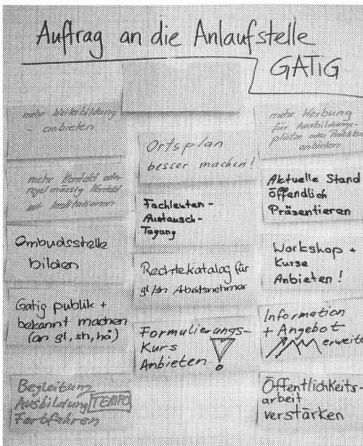 Auftrag an die Anlaufstelle
GATiG
mehr Weiterbildung
- anbieten
mehr Kontakt oder
regelmässig Kontakt
mit Institutionen
Ombudsstelle
bilden
Gatig publik +
bekannt machen
(an gl, sh, hö)
Begleitung
Ausbildung TEMPO
Fortfahren
Ortsplan
besser machen!
Fachleuten-
Austausch-
Tagung
Rechtekatalog für
gl/sh Arbeitsnehmer
Formulierungs-
Kurs
Anbieten!
mehr Werbung
für Ausbildungs-
plätze oder
anbieten
Aktuelle Stand
öffendlich
Präsentieren
Workshop +
Kurse
Anbieten!
Information
+ Angebot
erweite
Öffentlichkeits-
arbeit
verstärken